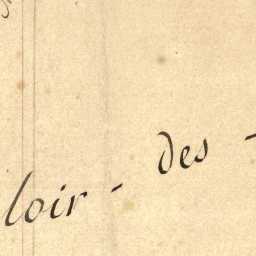 loir - des -